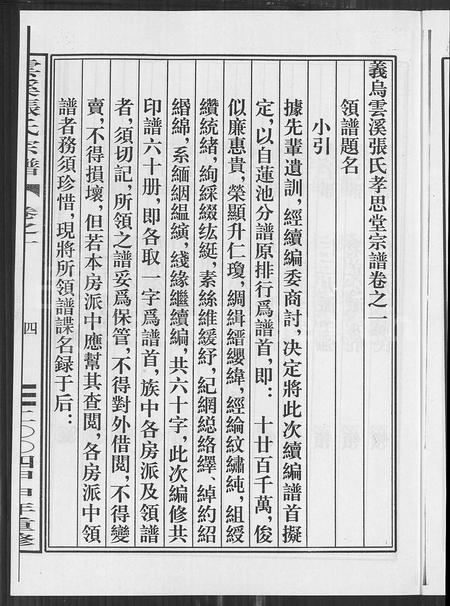 義烏雲溪張氏孝思堂宗譜卷之一
領譜題名
小引
據先輩遺訓，經續編委商討，决定將此次續編譜首擬
定，以自蓮池分譜原排行爲譜首，即：　十廿百千萬，俊
似廉惠貴，榮顯升仁瓊，綢緝縉纓緯，經綸紋繡純，組綬
纘統緒，絢綵綴紘綎，素絲維緩紓，紀網總絡繹、綽約紹
緡綿，系緬絪縕縯，綫緣繼續編，共六十字，此次編修共
印譜六十册，即各取一字爲譜首，族中各房派及領譜
者，須切記，所領之譜妥爲保管，不得對外借閲，不得變
賣，不得損壞，但若本房派中應幫其查閲，各房派中領
譜者務須珍惜，現將所領譜諜名録于后：
雲溪張氏宗譜
卷之一
四
二〇〇四甲申年重修